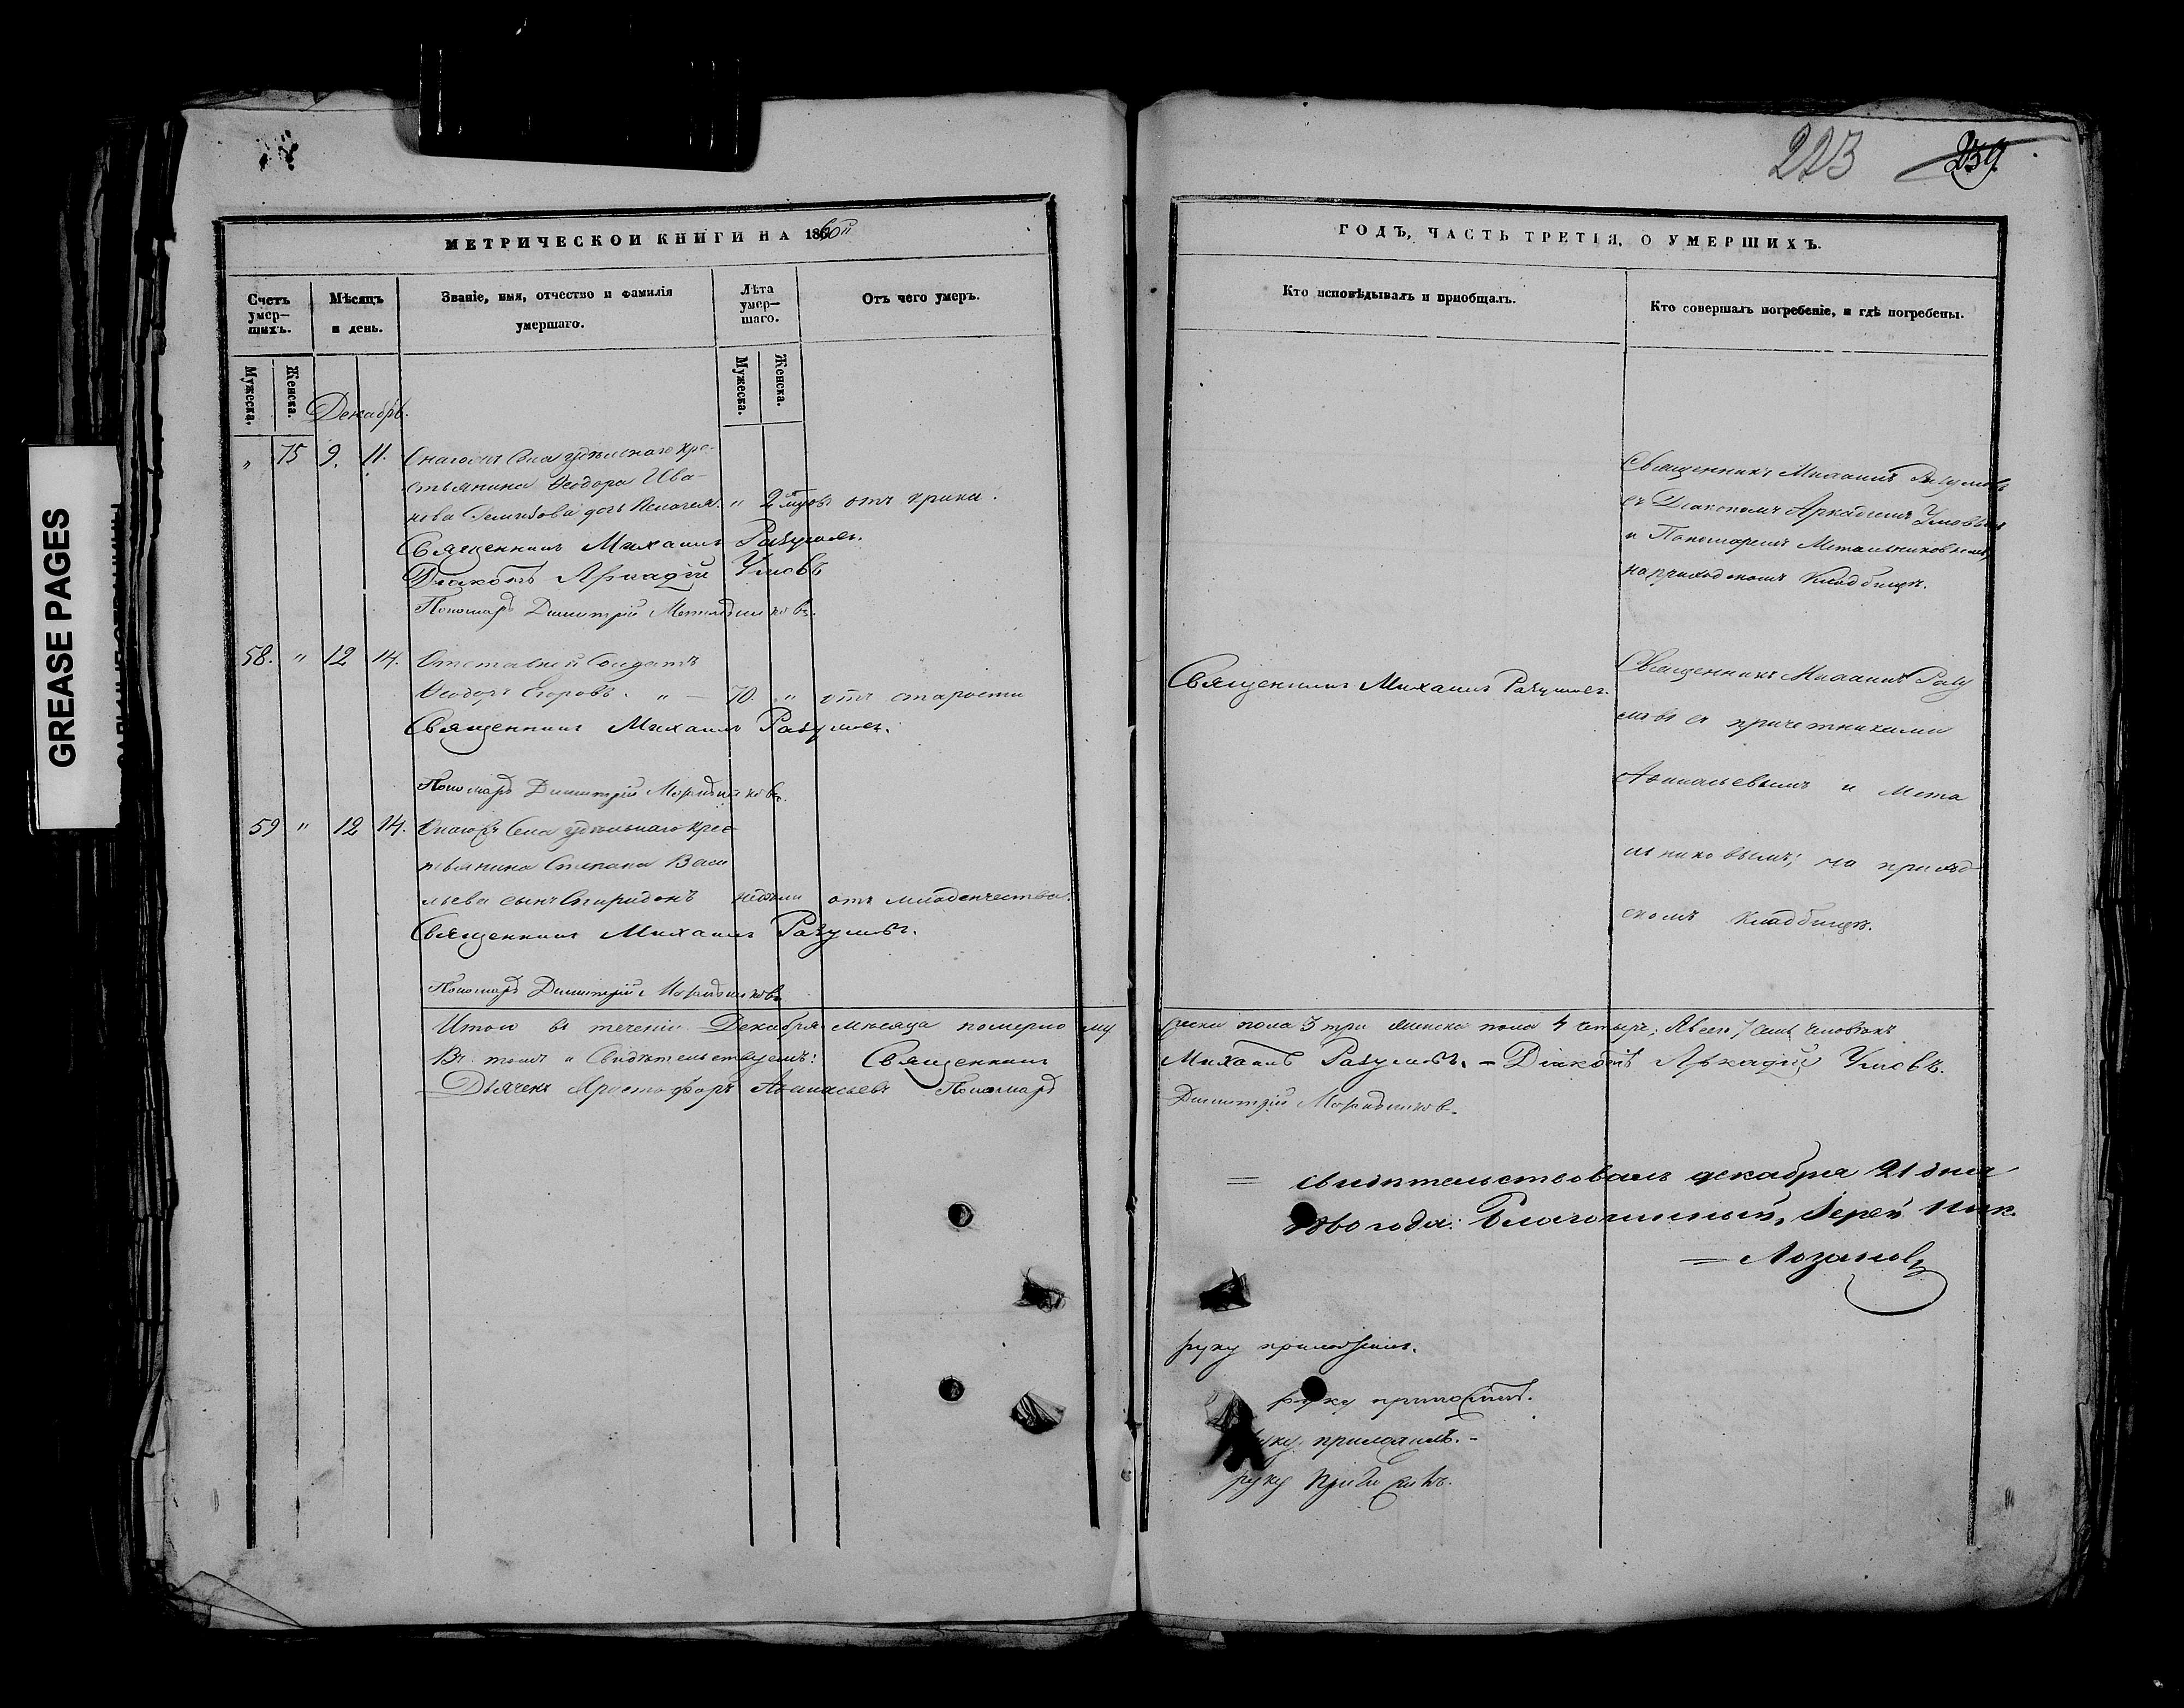 223 239
МЕТРИЧЕСКОЙ КНИГИ НА 1860й
ГОДЪ, ЧАСТЬ ТРЕТІЯ, О УМЕРШИХЪ.
Счетъ умер-шихъ.
Мѣсяцъ и день.
Званіе, имя, отчество и фамилія умершаго.
Лѣта умер-шаго.
Отъ чего умеръ.
Кто исповѣдывалъ и пріобщалъ.
Кто совершалъ погребеніе, и гдѣ погребены.
Мужеска.
Женска.
Мужеска.
Женска.
Декабрь.
" 75 9. 11. Села удѣльнаго кре-
стьянина Ѳеодора Ива-
нова дочь " 2 отъ крика.
Священникъ Михаилъ Разумовъ.
Діаконъ Аркадій Умовъ
Пономарь Димитрій Метальниковъ.
Священникъ Михаилъ Разумовъ
съ Діакономъ Аркадіемъ Умовымъ
и Пономаремъ Метальниковымъ,
на приходскомъ кладбищѣ.
58. " 12 14. Отставной Солдатъ
Ѳеодоръ Егоровъ. " — 70. " отъ старости
Священникъ Михаилъ Разумовъ.
Пономарь Димитрій Метальниковъ.
Священникъ Михаилъ Разумовъ.
Священникъ Михаилъ Разу
мовъ съ причетниками
Аѳанасьевымъ и Мета
льниковымъ; на приход
скомъ кладбищѣ.
59 " 12 14. Села удѣльнаго крес
тьянина Степана Васи
льева сынъ Спиридонъ недѣли отъ младенчества.
Священникъ Михаилъ Разумовъ.
Пономарь Димитрій Метальниковъ
Итого въ теченіи Декабря мѣсяца померло му
жеска пола 3 три женска пола 4 четыре; Всего 7 семь человѣкъ
Въ томъ и Свидѣтельствуемъ: Священникъ
Михаилъ Разумовъ. - Діаконъ Аркадій Умовъ.
Дьячекъ Христофоръ Аѳанасьевъ Пономарь
Димитрій Метальниковъ.
= свидѣтельствовалъ декабря 21 дня
1860 года: Благочинный, Іерей Ник.
= Лозановъ
руку приложилъ.
руку приложилъ.
руку приложилъ. -
руку приложилъ.
GREASE PAGES